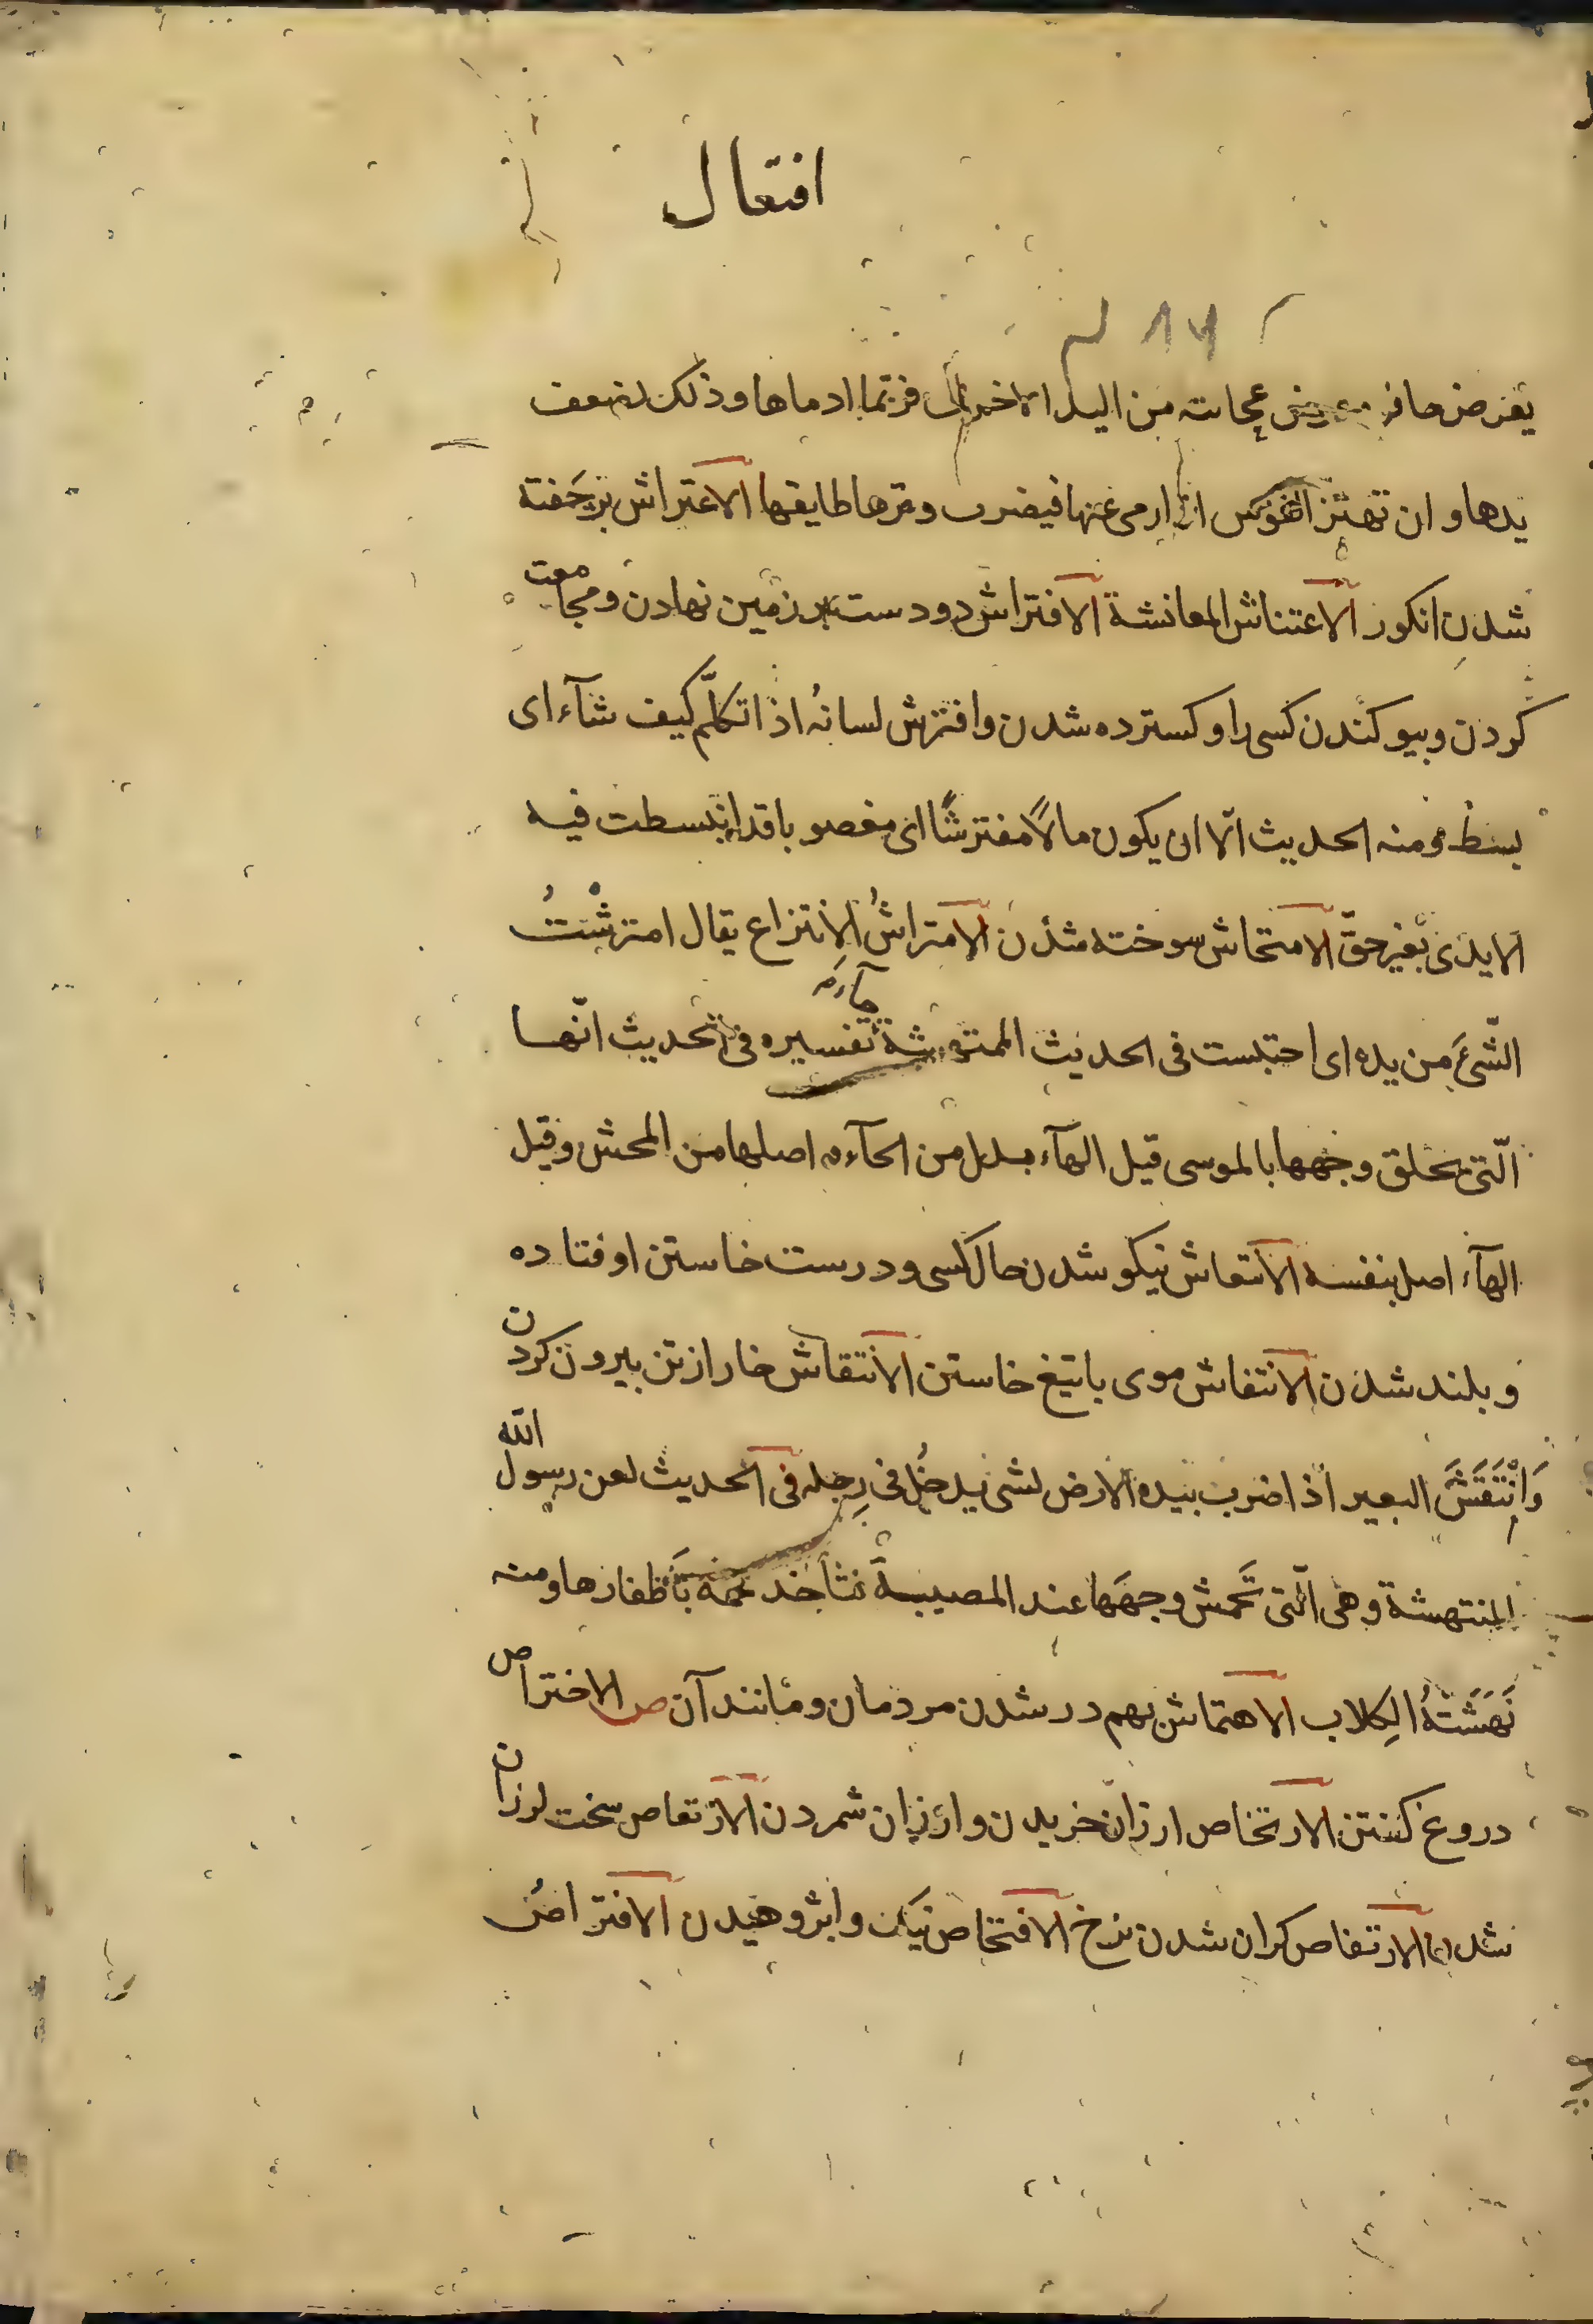 افتعال
يعرض حافر عجايته من اليد الاخرى فربّما ادماها وذلك لضعف
يدها وان تهتز القوس اذا رمى عنها فيضرب وترها طايفها الاعتراش بر جفته
شدن انكور الاعتناش المعانشة الافتراش دو دست بر زمين نهادن ومجامعت
كردن وبيوكندن كسى را وكسترده شدن وافترش لسانُه اذا تكلّم كيف شآء اى
بسط ومنه الحديث الّا ان يكون مالًا مفترشًا اى مغصوبا قد انبسطت فيه
الايدى بغير حقّ الامتحاش سوخته شدن الامتراشُ الانتزاع يقال امترشْتُ
الشّئَ من يده اى اختلست فى الحديث الممتهشة جآء تفسيره فى الحديث انّها
الّتى تحلق وجهها بالموسى قيل الهآء بدل من الحآء اصلها من المحش وقيل
الهآء اصل بنفسه الانتعاش نيكو شدن حال كسى ودرست خاستن اوفتاده
وبلند شدن الانتفاش موى باتيغ خاستن الانتقاش خار از تن بيرون كردن
وَانْتَقَشَ البعير اذا ضرب بيده الارض لشى يدخُل فى رِجله فى الحديث لعن رسول الله
المنتهشة وهى الّتى تَخمش وجهَها عند المصيبة فتأخذ لحمه بأَظفارها ومنه
نَهَشَتْهُ الكِلاب الاهتماش بهم در شدن مردمان ومانند آن ص الاختراص
دروغ كفتن الارتخاص ارزان خريدن وارزان شمردن الارتعاص سخت لرزان
شدن الارتفاص كران شدن نرخ الافتحاص نيك وابژوهيدن الافتراصُ